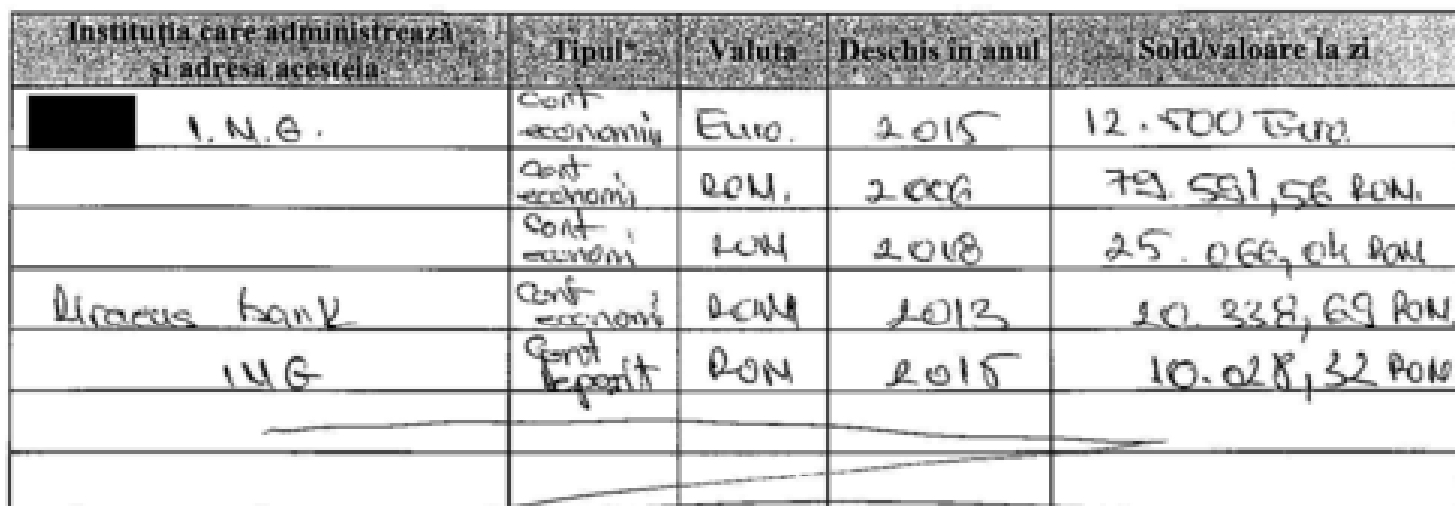 Instituția care administrează și adresa acesteia Tipul* Valuta Deschis în anul Sold/valoare la zi
I.N.G. Cont economii Euro. 2015 12.500 Euro.
Cont economi ROM. 2006 79.591,56 ROM.
Cont economi ROM 2018 25.066,04 ROM
Piraeus bank Cont economi RON 2013 20.338,69 RON
ING Cont depozit RON 2015 10.028,32 RON